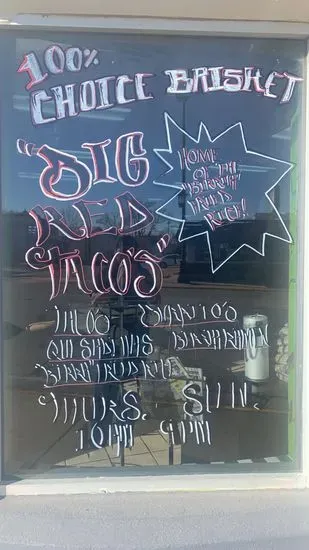 100%
CHOICE BRISKET
"BIG
RED
TACO'S"
HOME
OF THE
"BIRRIA"
FRIED
RICE!
TACOS BURRITO'S
QUESADILLAS BIRRIA RAMEN
"BIRRIA" FRIED RICE
THURS. SUN.
10AM 9PM